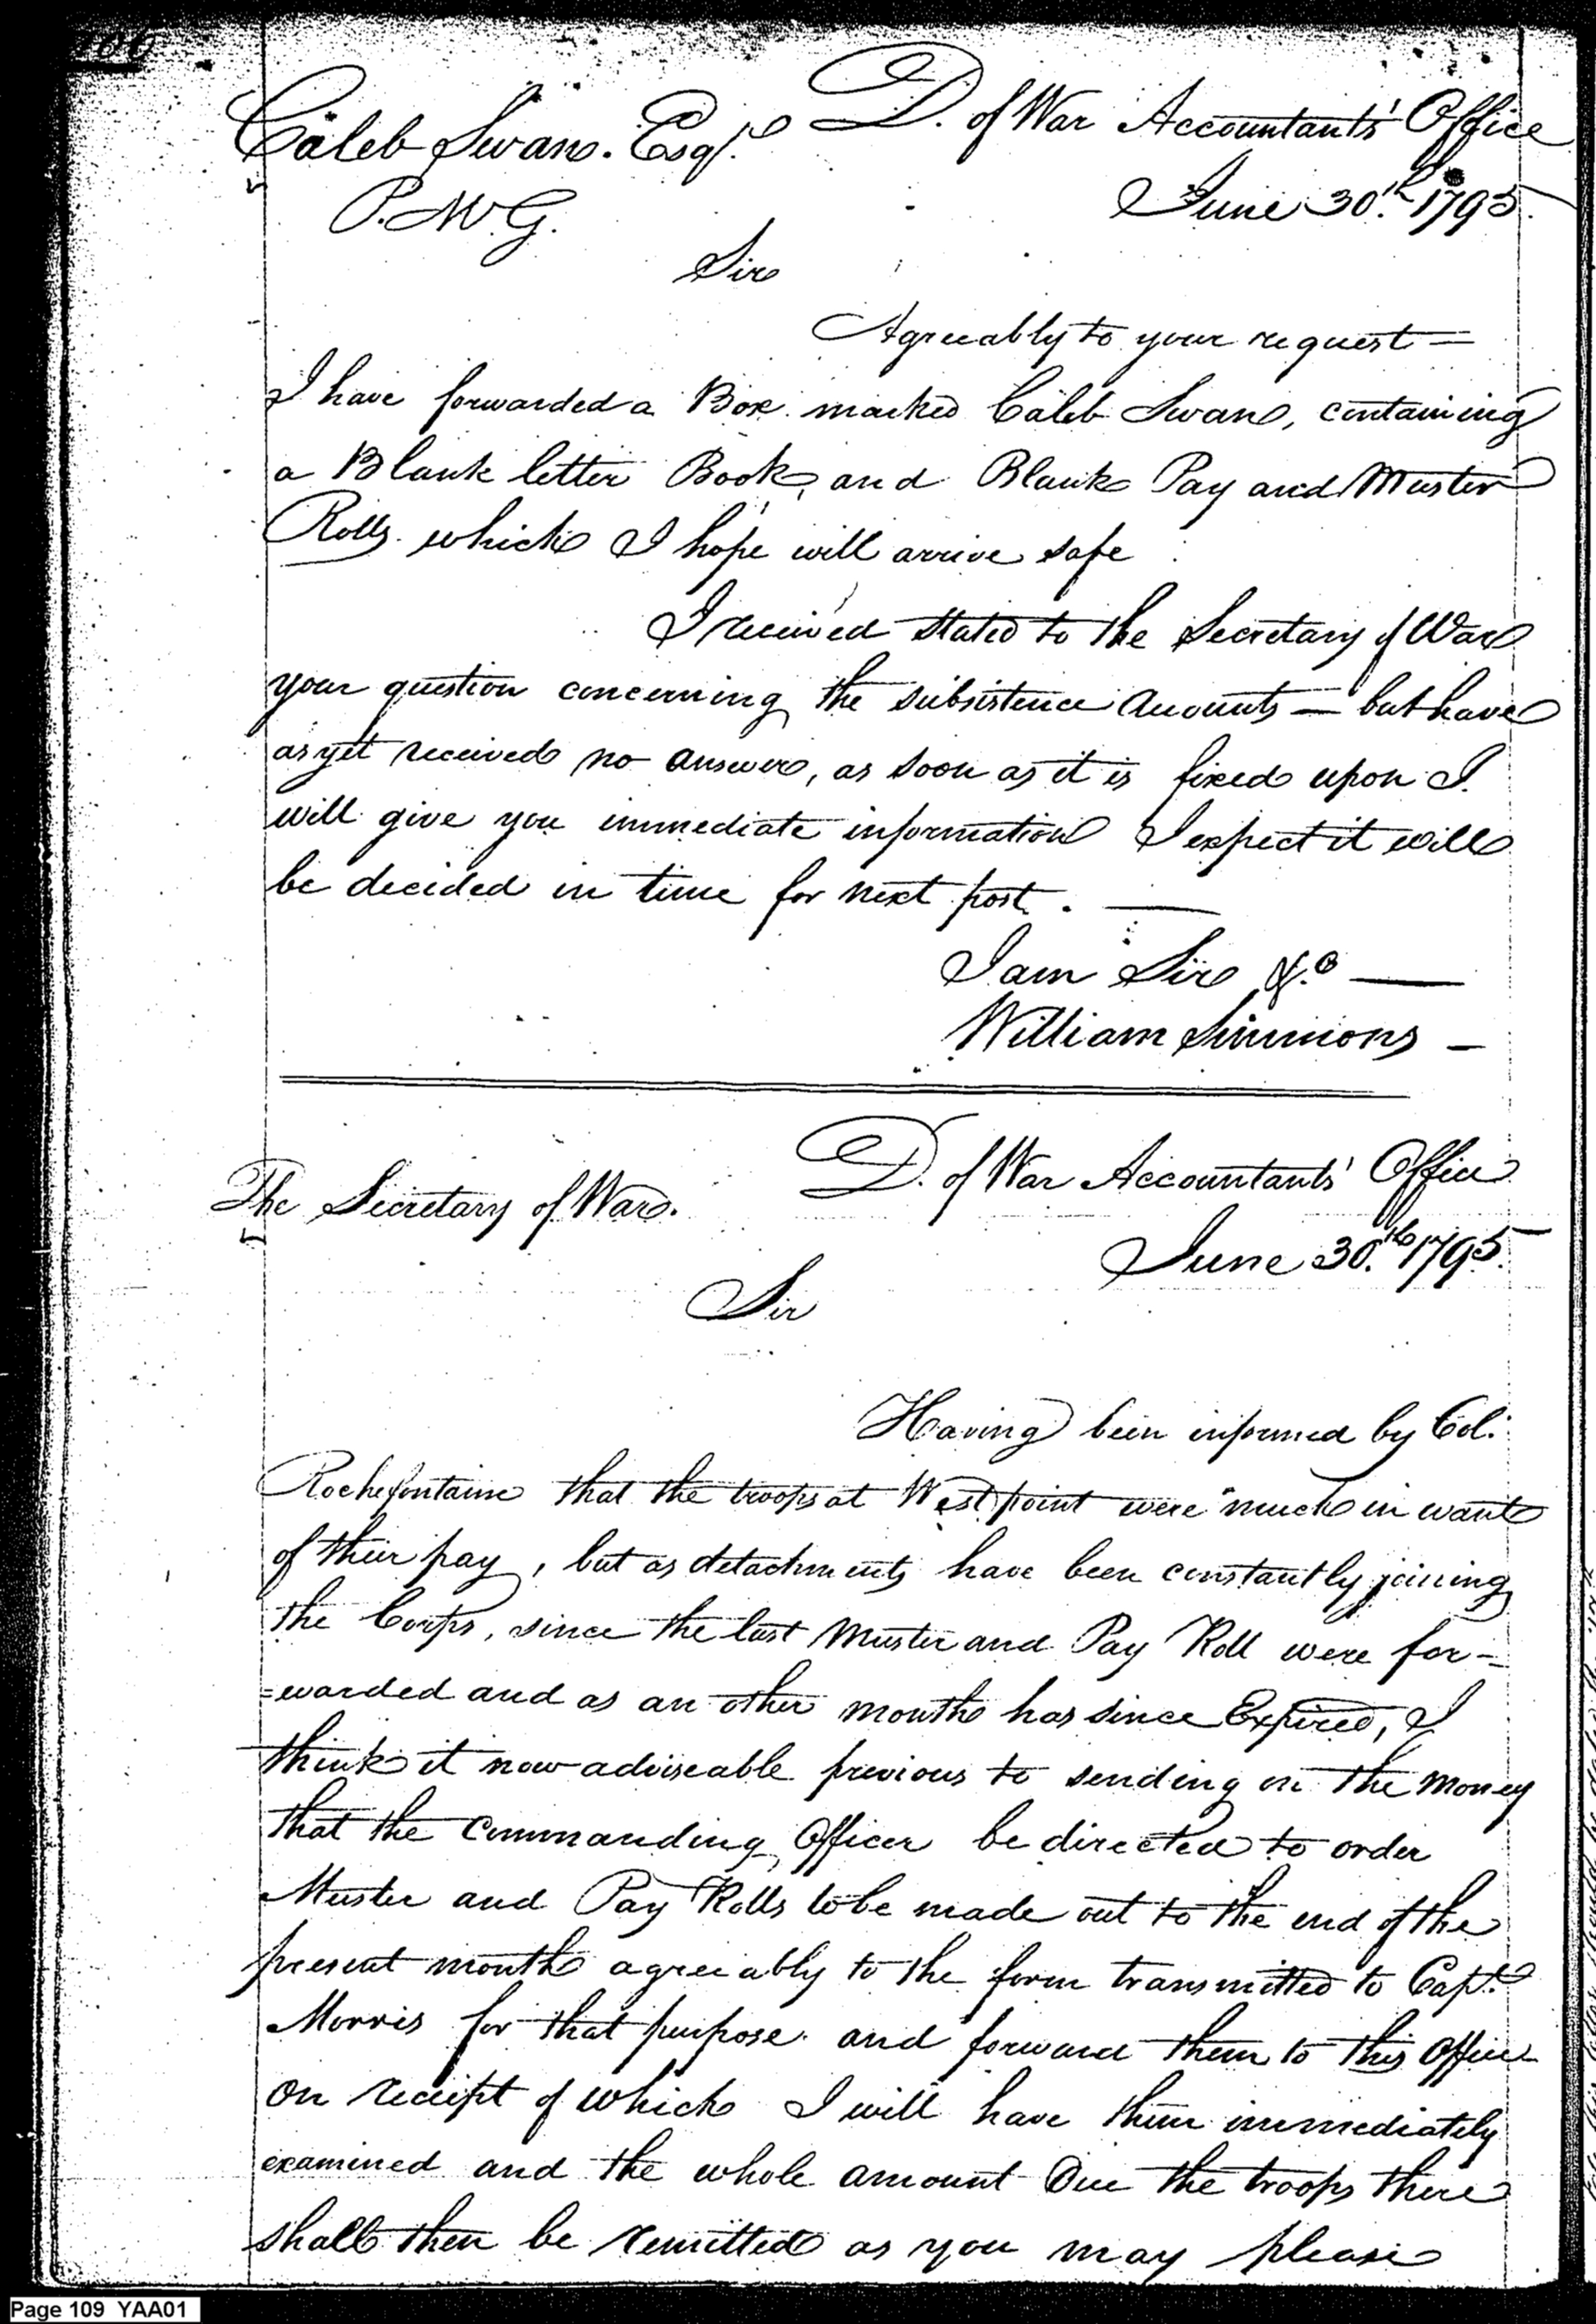 Caleb Swan. Esqr.
D. of War Accountants' Office
P.M.G.
June 30th 1795.
Sir
Agreeably to your request —
I have forwarded a Box marked Caleb Swan, containing
a Blank letter Book, and Blank Pay and Muster
Rolls which I hope will arrive safe
I received stated to the Secretary of War
your question concerning the subsistence Accounts — but have
as yet received no answer, as soon as it is fixed upon I
will give you immediate information I expect it will
be decided in time for next post. —
I am Sir &c —
William Simmons —
The Secretary of War.
D. of War Accountants' Office
June 30.th 1795.
Sir
Having been informed by Col.
Rochefontaine that the troops at West point were much in want
of their pay, but as detachments have been constantly joining
the Corps, since the last Muster and Pay Roll were for-
=warded and as an other month has since Expired, I
think it now adviseable previous to sending on the money
that the Commanding Officer be directed to order
Muster and Pay Rolls to be made out to the end of the
present month agreeably to the form transmitted to Capt.
Morris for that purpose and forward them to this Office
on receipt of which I will have them immediately
examined and the whole amount Due the troops there
shall then be remitted as you may please
Page 109 YAA01